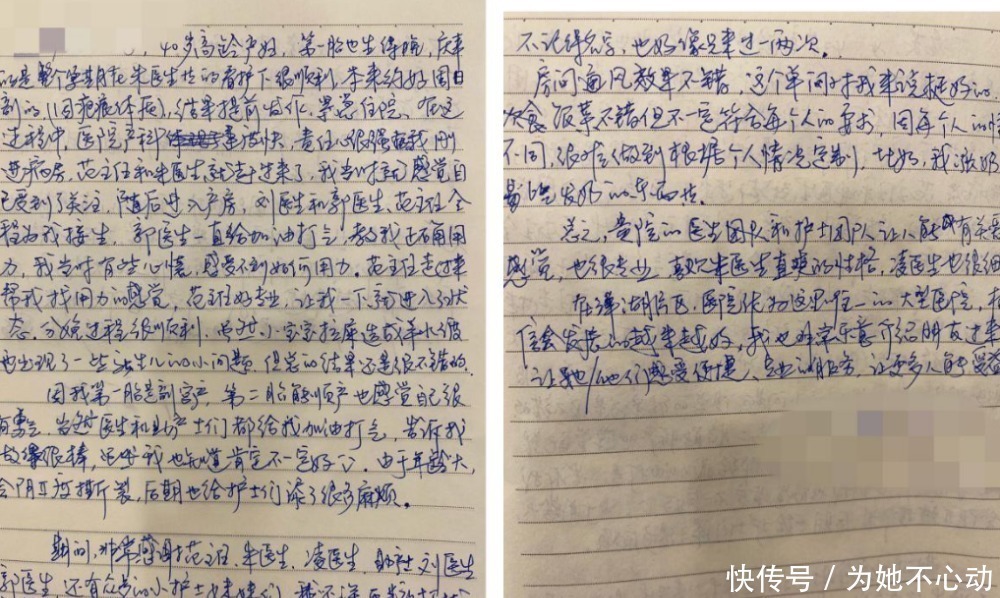 40岁高龄产妇,第一胎也生得晚,庆幸
的是整个孕期在朱医生的看护下很顺利,本来约好周日
剖的,(因疤痕体质),结果提前发作,紧急住院。在这
过程中,医院产科速度快,责任心很强,我刚
进病房,范主任和朱医生就清过来了,我当时就感觉自
己受到了关注,随后进入产房,刘医生和郭医生、范主任全
程为我接生,郭医生一直给加油打气,教我正确用
力,我当时有些心慌,感受不到如何用力。范主任走过来
帮我找用力的感觉,范主任好专业,让我一下就进入了状
态。分娩过程很顺利,虽然小宝宝拉屎造成羊水浸
也出现了一些新生儿的小问题,但总的结果还是很不错的。
因我第一胎是剖宫产,第二胎能顺产也感觉自己很
有勇气,当时医生和助产士们都给我加油打气,告诉我
做得很棒,虽然我也知道肯定不一定好。由于年龄大,
会阴II度撕裂,后期也给护士们添了很多麻烦。
期间,非常感谢范主任、朱医生、凌医生、助产士刘医生
郭医生,还有众多的小护士
不记得名字,也好像只来过一两次。
房间通风效果不错,这个单间对我来说挺好的,
饮食饭菜不错但不一定符合每个人的要求,因每个人的情
不同,很难做到根据个人情况定制,
总之,贵院的医生团队和护士团队让人能有亲
感觉,也很专业,喜欢朱医生直爽的性格,凌医生也很细
在泽湖片区,医院作为这里唯一的大型医院,相
信会发展的越来越好,我也非常乐意介绍朋友过来
让她/他们感受便捷、专业的服务,让更多人能受益
快传号 / 为她不心动